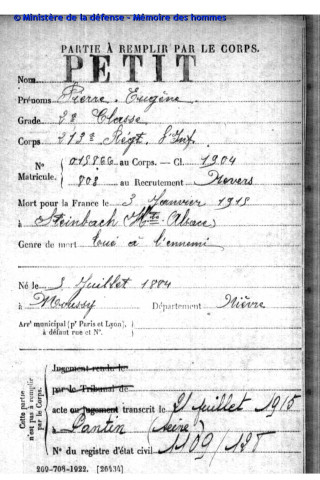 © Ministère de la défense - Mémoire des hommes
PARTIE À REMPLIR PAR LE CORPS.
Nom PETIT
Prénoms Pierre, Eugène
Grade 2e Classe
Corps 213e Régt. d'Inf.
N° 015866 au Corps. — Cl. 1904
Matricule. 708 au Recrutement Nevers
Mort pour la France le 3 Janvier 1915
à Steinbach (Hte Alsace)
Genre de mort Tué à l'ennemi
Né le 3 Juillet 1884
à Moussy Département Nièvre
Arrt municipal (pr Paris et Lyon),
à défaut rue et N°.
Cette partie n'est pas à remplir par le Corps.
Jugement rendu le
par le Tribunal de
acte ou jugement transcrit le 21 Juillet 1915
à Pantin (Seine)
N° du registre d'état civil 1109/125
269-708-1922. [26434]